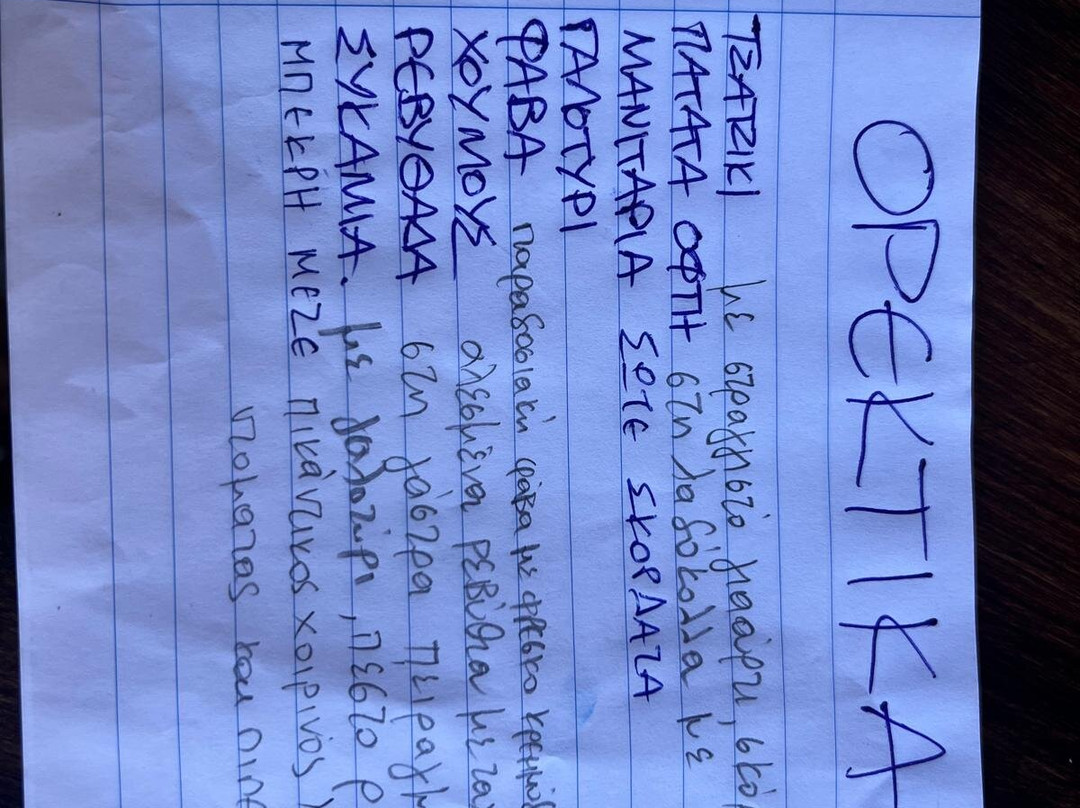 ΟΡΕΚΤΙΚΑ
ΤΖΑΤΖΙΚΙ με στραγγιστό γιαούρτι,
ΠΑΤΑΤΑ ΟΦΤΗ στη λαδόκολλα με
ΜΑΝΙΤΑΡΙΑ ΣΩΤΕ ΣΚΟΡΔΑΤΑ
ΓΑΛΟΤΥΡΙ
ΦΑΒΑ παραδοσιακή φάβα με φρέσκο
ΧΟΥΜΟΥΣ αλεσμένα ρεβύθια με
ΡΕΒΥΘΑΔΑ στη γάστρα
ΣΥΚΑΜΙΑ. με γαλοτύρι, πέστο
ΜΠΕΚΡΗ ΜΕΖΕ πικάντικος χοιρινός
τομάτας και